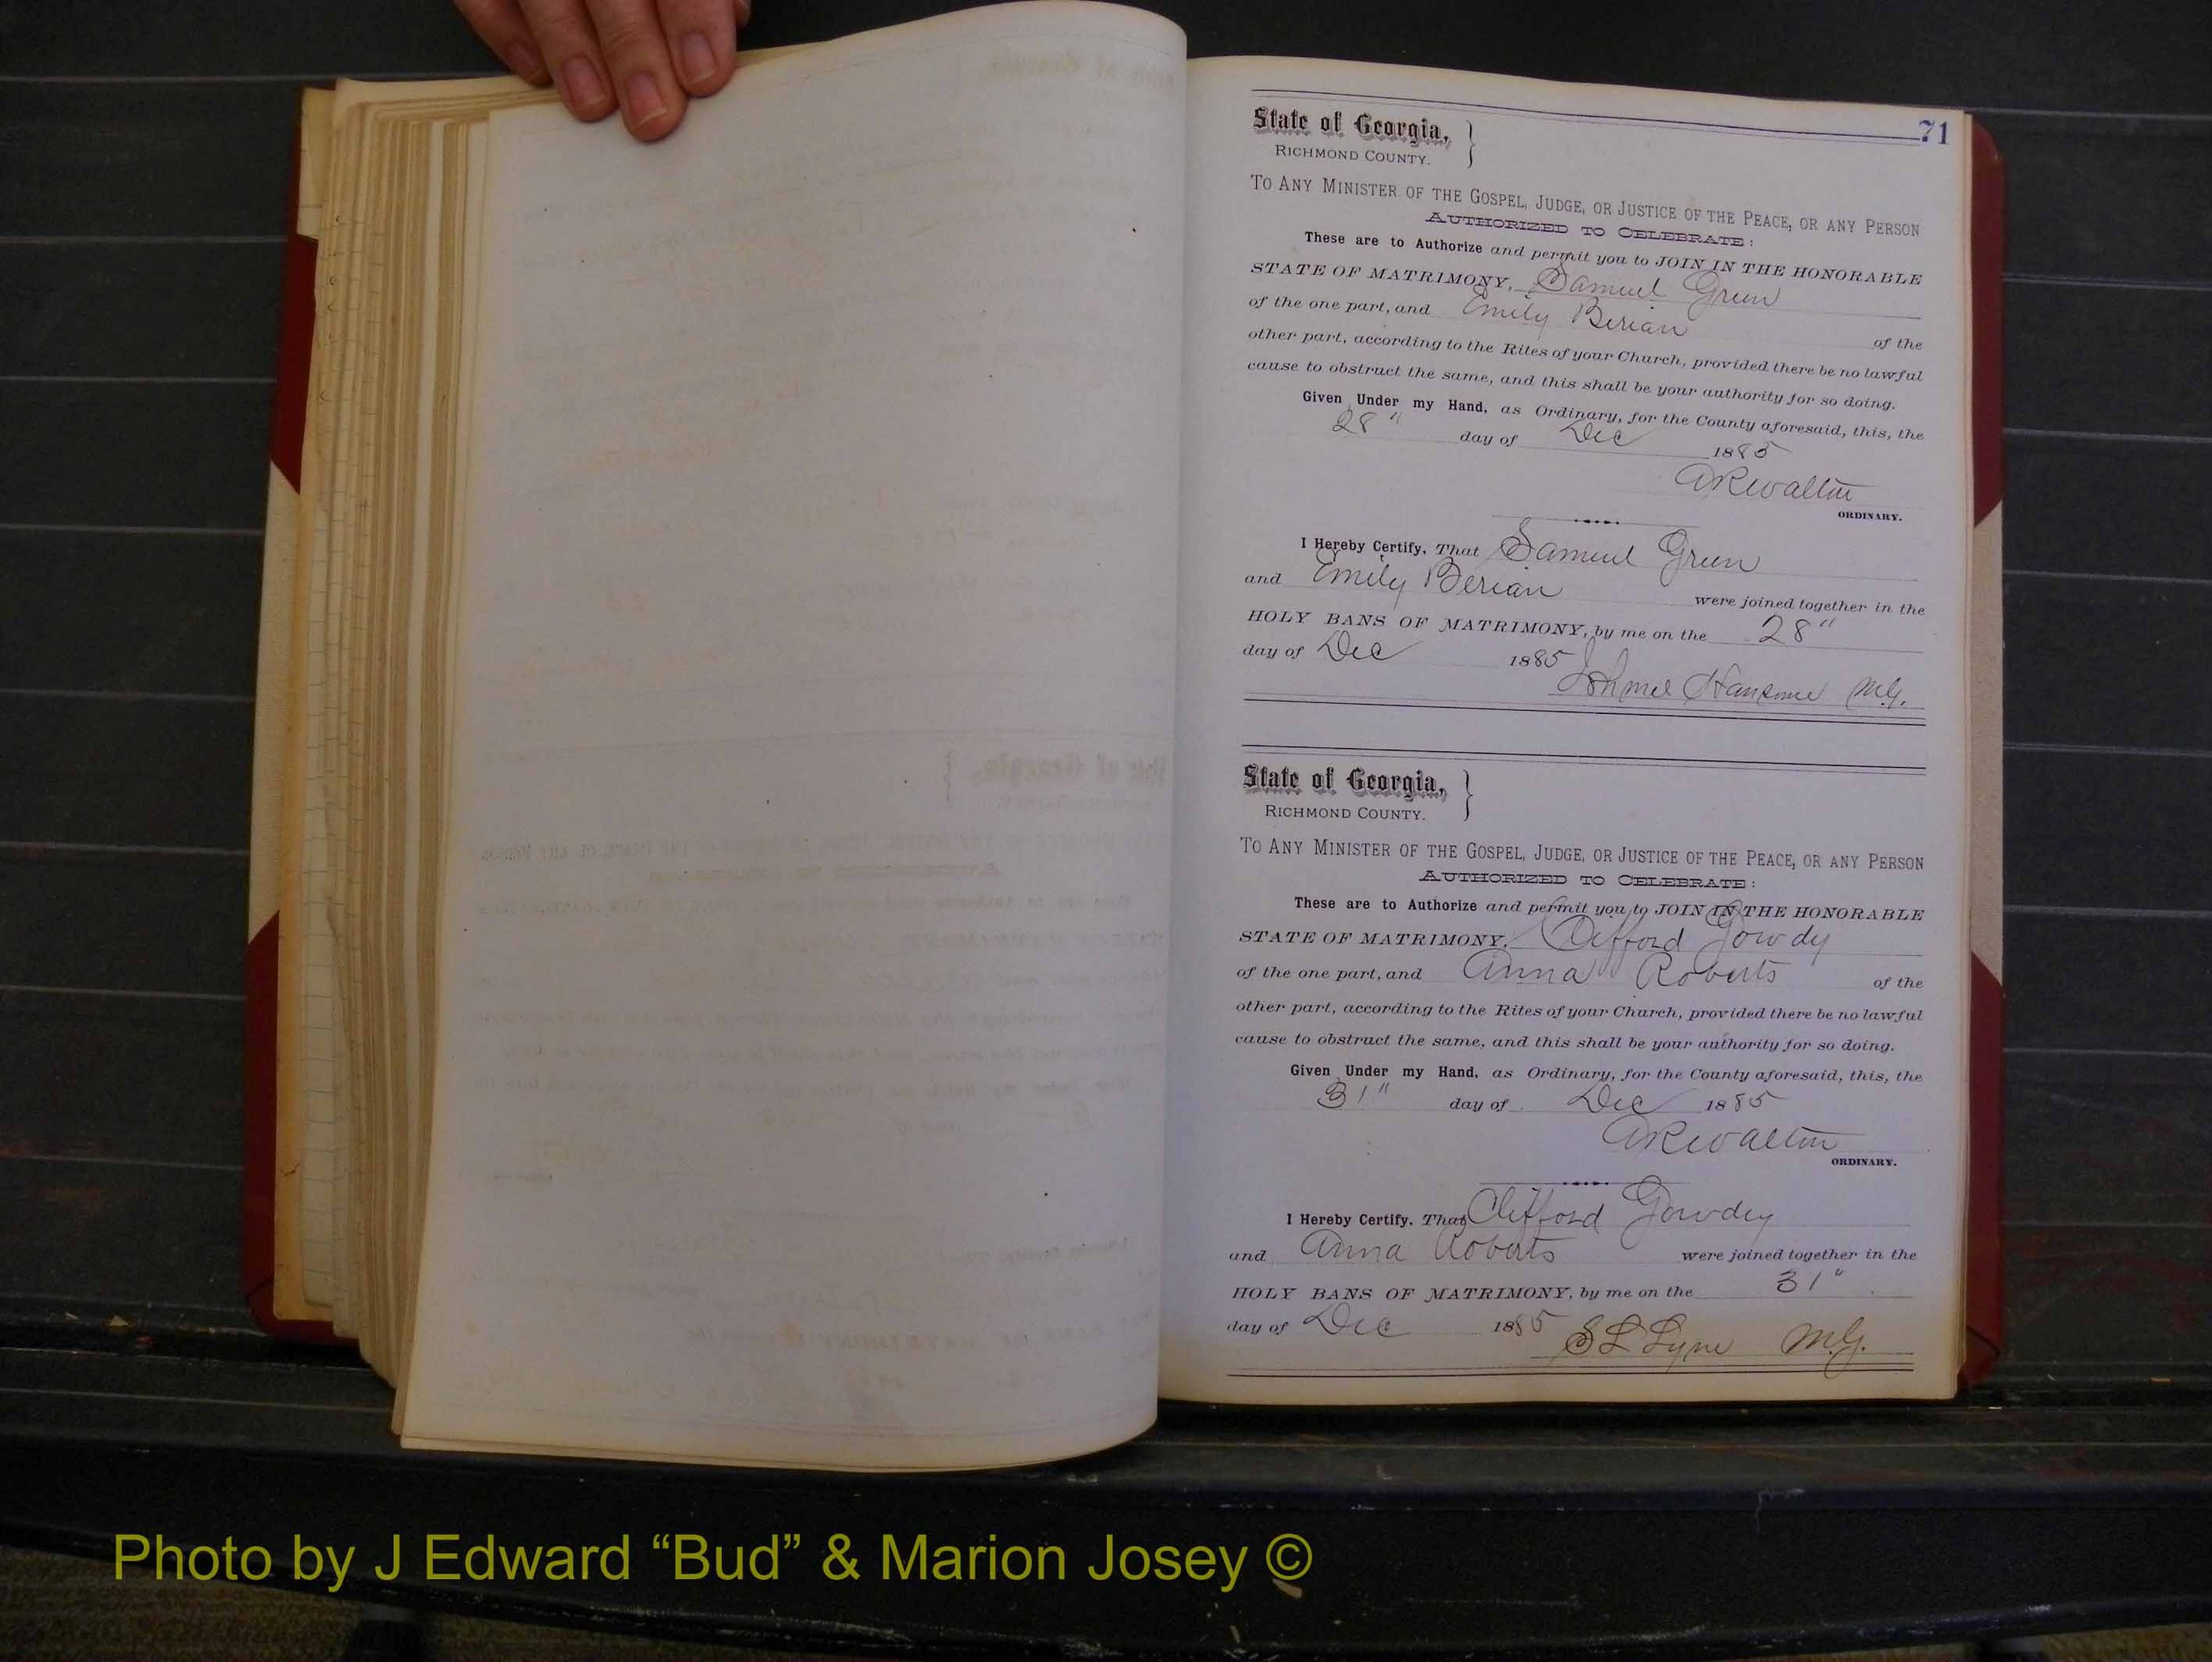 71
State of Georgia,
RICHMOND COUNTY.
TO ANY MINISTER OF THE GOSPEL, JUDGE, OR JUSTICE OF THE PEACE, OR ANY PERSON
AUTHORIZED TO CELEBRATE:
These are to Authorize and permit you to JOIN IN THE HONORABLE
STATE OF MATRIMONY, Samuel Green
of the one part, and Emily Berian of the
other part, according to the Rites of your Church, provided there be no lawful
cause to obstruct the same, and this shall be your authority for so doing.
Given Under my Hand, as Ordinary, for the County aforesaid, this, the
28" day of Dec 1885
A R Walton
ORDINARY.
I Hereby Certify, That Samuel Green
and Emily Berian were joined together in the
HOLY BANS OF MATRIMONY, by me on the 28"
day of Dec 1885
M.G.
State of Georgia,
RICHMOND COUNTY.
TO ANY MINISTER OF THE GOSPEL, JUDGE, OR JUSTICE OF THE PEACE, OR ANY PERSON
AUTHORIZED TO CELEBRATE:
These are to Authorize and permit you to JOIN IN THE HONORABLE
STATE OF MATRIMONY, Clifford Gowdy
of the one part, and Anna Roberts of the
other part, according to the Rites of your Church, provided there be no lawful
cause to obstruct the same, and this shall be your authority for so doing.
Given Under my Hand, as Ordinary, for the County aforesaid, this, the
31" day of Dec 1885
A R Walton
ORDINARY.
I Hereby Certify, That Clifford Gowdey
and Anna Roberts were joined together in the
HOLY BANS OF MATRIMONY, by me on the 31"
day of Dec 1885
S L Lyne M.G.
Photo by J Edward “Bud” & Marion Josey ©